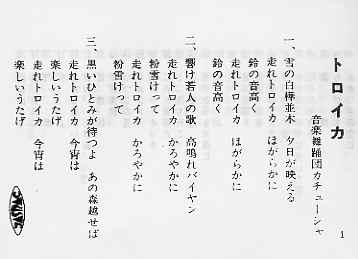 トロイカ
音楽舞踊団カチューシャ
一、雪の白樺並木 夕日が映える
走れトロイカ ほがらかに
鈴の音高く
走れトロイカ ほがらかに
鈴の音高く
二、響け若人の歌 高鳴れバイヤン
走れトロイカ かろやかに
粉雪けって
走れトロイカ かろやかに
粉雪けって
三、黒いひとみが待つよ あの森越せば
走れトロイカ 今宵は
楽しいうたげ
走れトロイカ 今宵は
楽しいうたげ
1